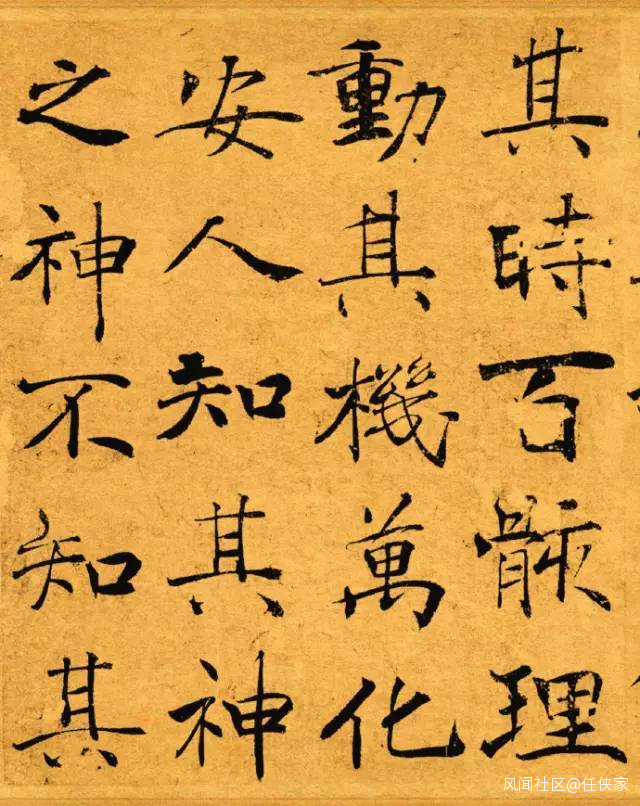 其時百骸理
動其機萬化
安人知其神
之神不知其
风闻社区@任侠家